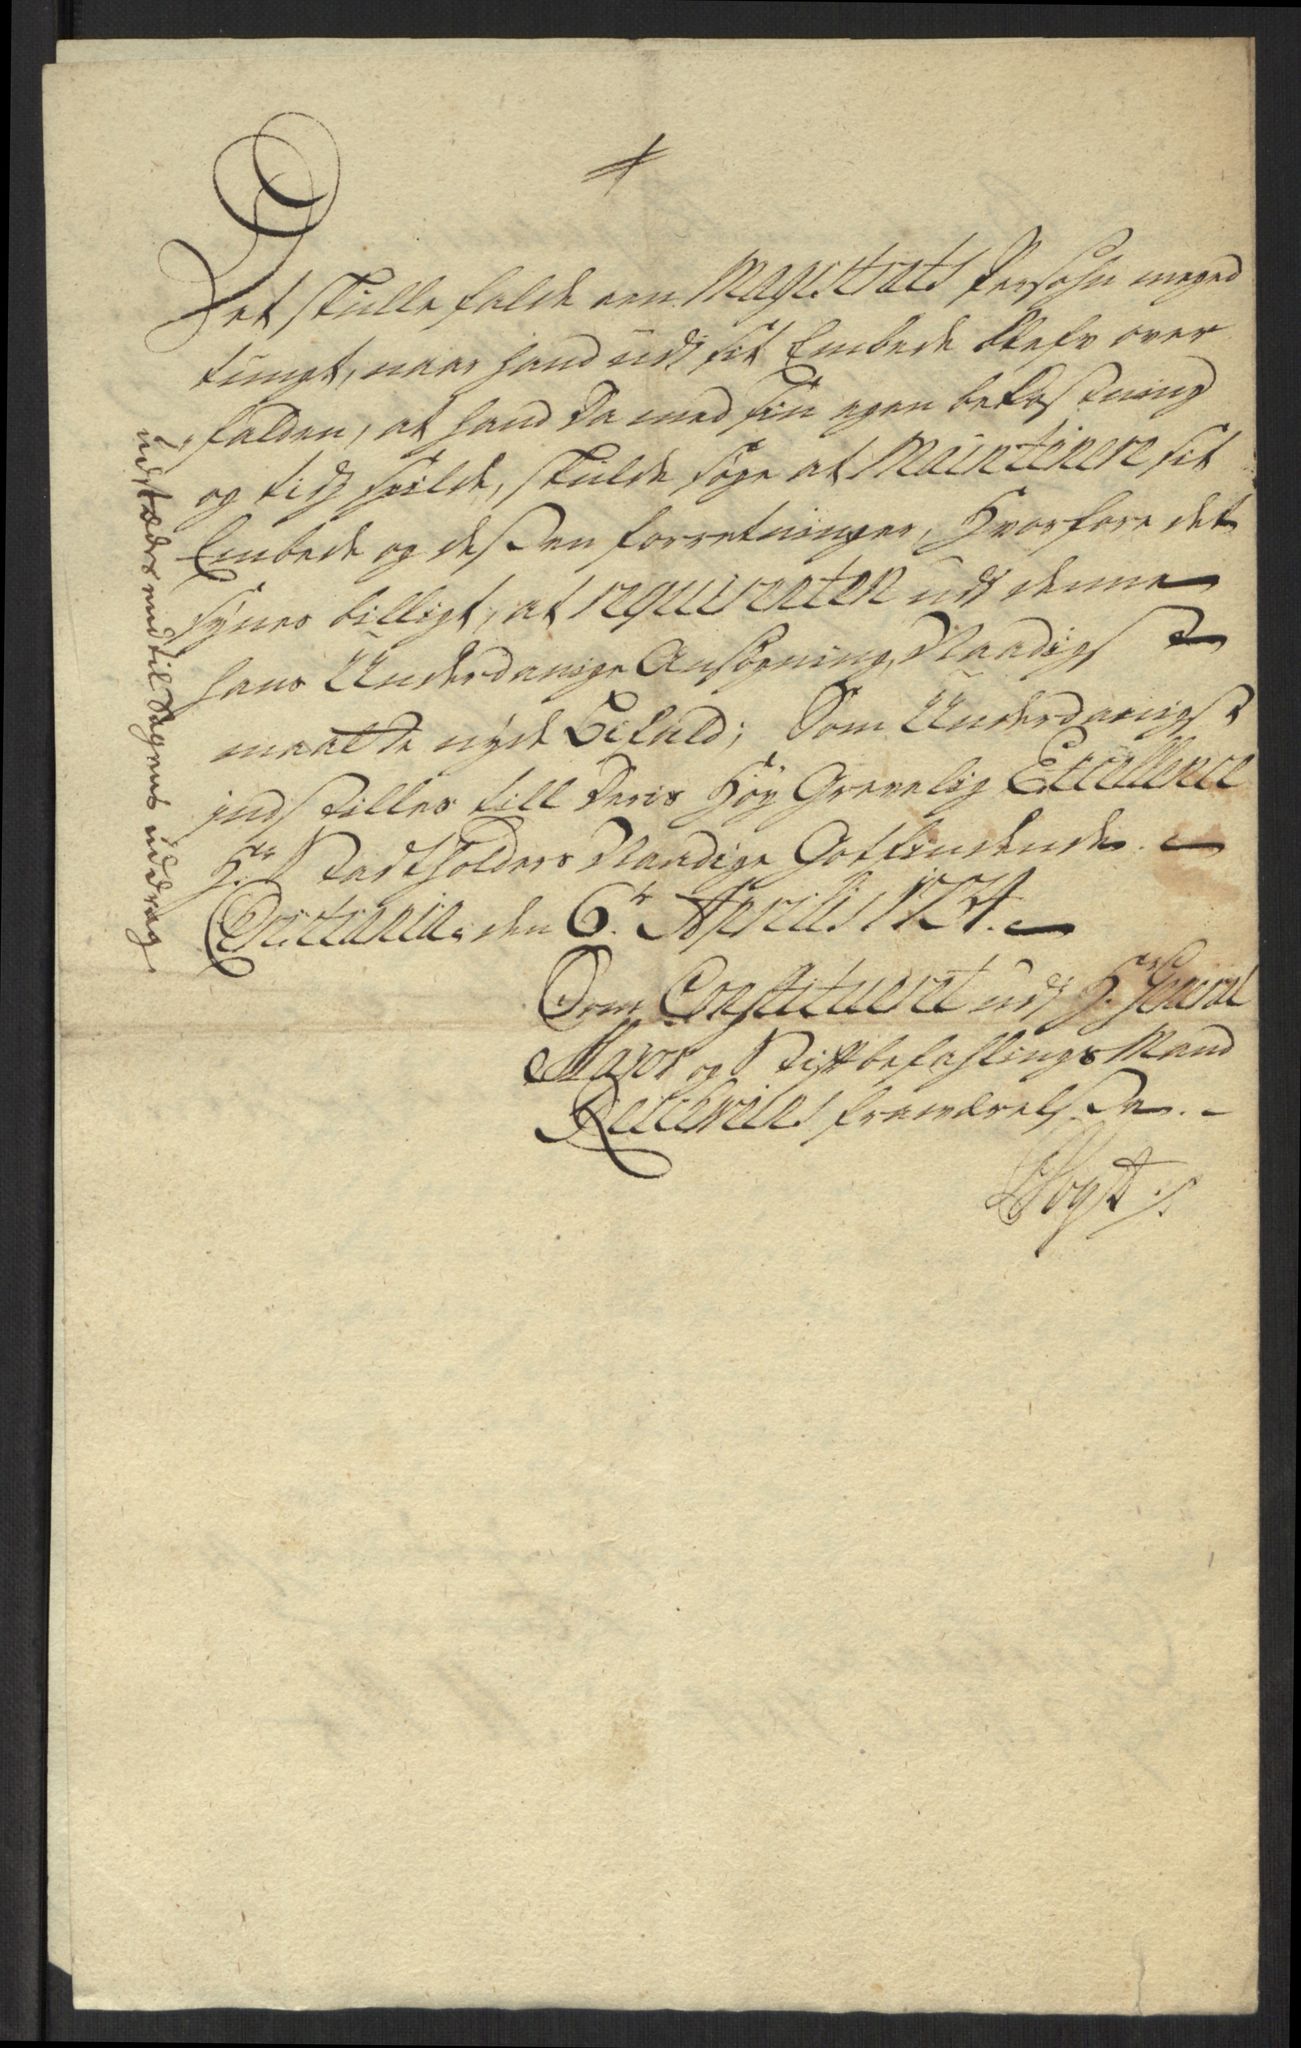 Det skulle falde een Magistrats Persohn meget
tungt, naar hand udj sit Embede blefv over
falden, at hand da med sin egen bekostning
og tids spilde, skulde søge at Maintinere sit
Embede og dessen forretninger, Hvorfore det
synes billigt, at requirenten udj denne
hans Underdanige Ansøgning, Naadigst
maatte nyde Bifald; Som Underdanigst
indstilles till Deris Høy Grevelig Excellence
Hr. Stadtholders Naadige Gottfindende.
Christiania den 6te Aprilis 1724.
Som Constitueret udj Hr. General
Major og Stiftbefahlings Mand
fraværelse.
Vogt
udstædes indtil Sagens uddrag.